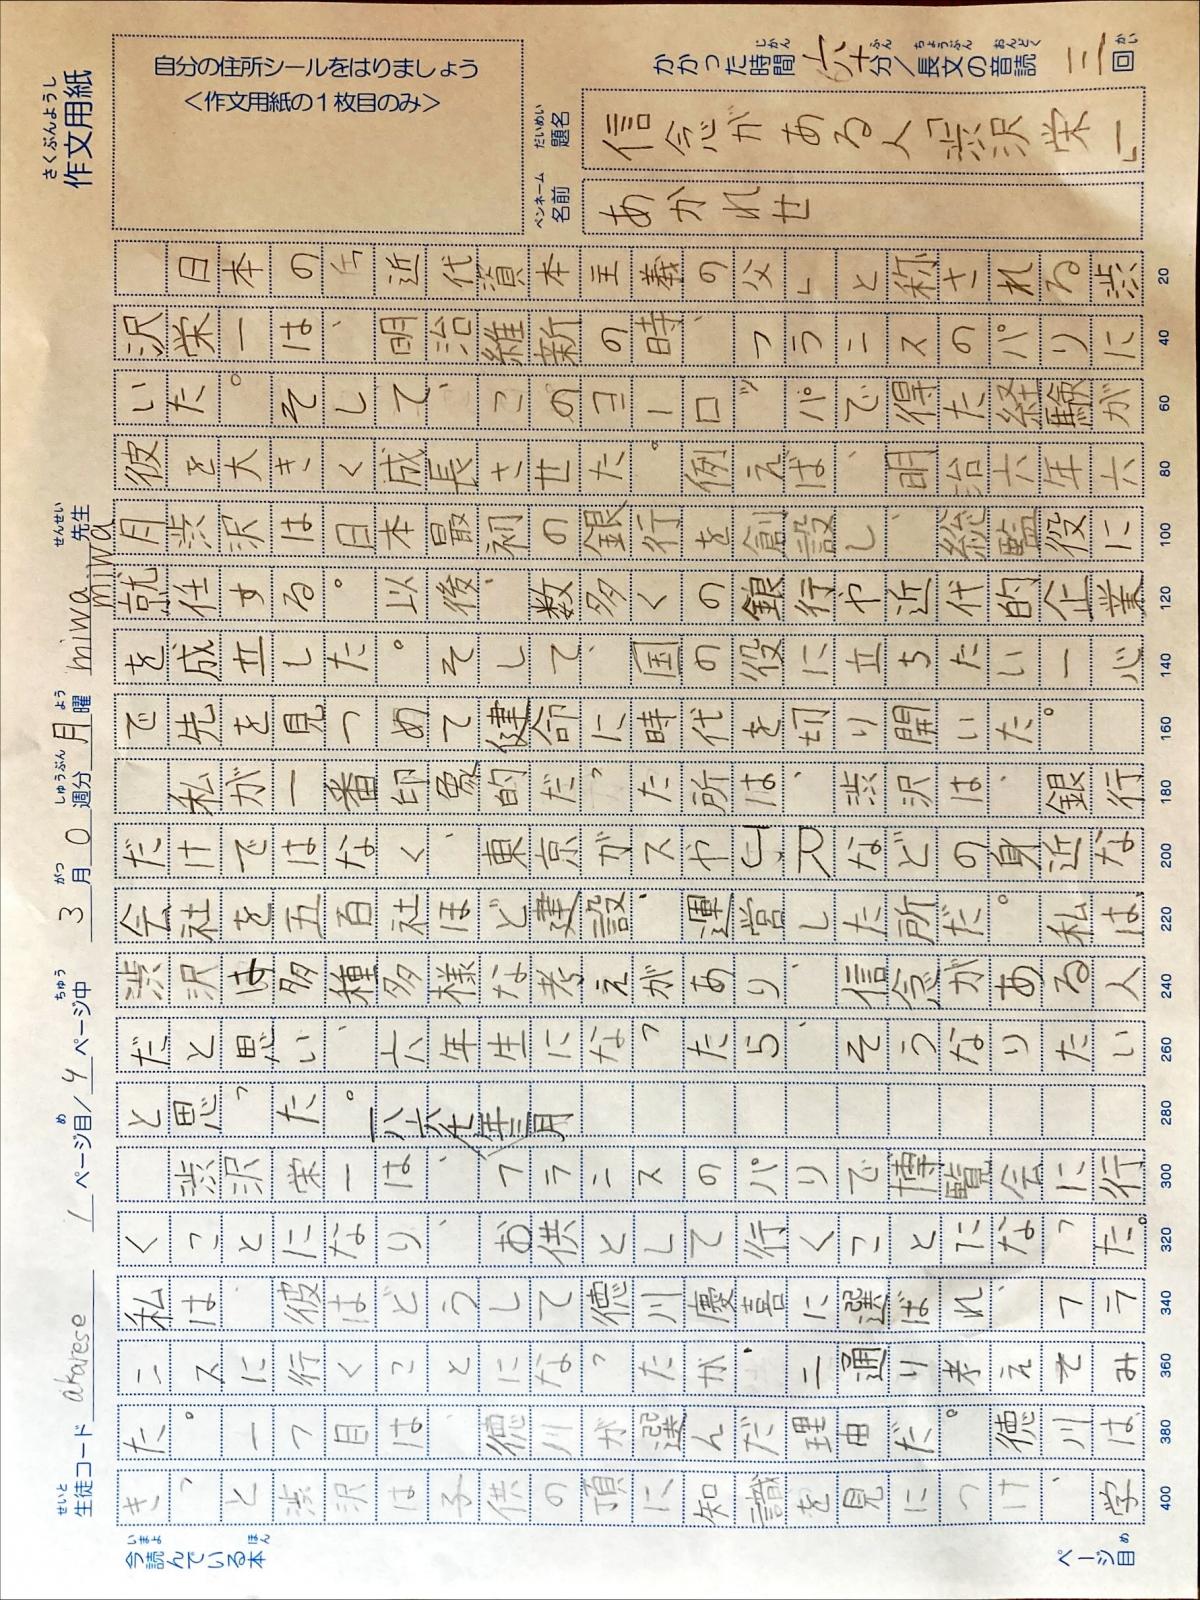 作文用紙
さくぶんようし
自分の住所シールをはりましょう
<作文用紙の1枚目のみ>
かかった時間 六十分/長文の音読 三回
じかん ふん ちょうぶん おんどく かい
題名 信念がある人「渋沢栄一」
だいめい
名前 あかれせ
ペンネーム
生徒コード akarese 1ページ目/4ページ中 3月0週分月曜 miwa miwa先生
せいと め ちゅう がつ しゅうぶん よう せんせい
日本の「近代資本主義の父」と称される渋
沢栄一は、明治維新の時、フランスのパリに
いた。そして、このヨーロッパで得た経験が
彼を大きく成長させた。例えば、明治六年六
月渋沢は日本最初の銀行を創設し、総監役に
就任する。以後、数多くの銀行や近代的企業
を成立した。そして、国の役に立ちたい一心
で先を見つめて健命に時代を切り開いた。
私が一番印象的だった所は、渋沢は、銀行
だけではなく、東京ガスやJRなどの身近な
会社を五百社ほど建設、運営した所だ。私は、
渋沢は多種多様な考えがあり、信念がある人
だと思い、六年生になったら、そうなりたい
と思った。
一八六七年三月
渋沢栄一は、フランスのパリで博覧会に行
くことになり、お供として行くことになった。
私は、彼はどうして徳川慶喜に選ばれ、フラ
ンスに行くことになったか、二通り考えてみ
た。一つ目は、徳川が選んだ理由だ。徳川は、
きっと渋沢は子供の頂に知識を見につけ、学
20 40 60 80 100 120 140 160 180 200 220 240 260 280 300 320 340 360 380 400
今読んでいる本
いまよ ほん
ページ目
め